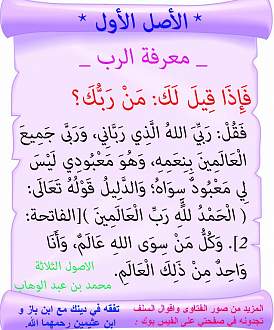 * الأصل الأول *
_ معرفة الرب _
فَإِذَا قِيلَ لَكَ: مَنْ رَبُّكَ؟
فَقُلْ: رَبِّيَ اللهُ الَّذِي رَبَّانِي، وَرَبَّى جَمِيعَ
الْعَالَمِينَ بِنِعَمِهِ، وَهُوَ مَعْبُودِي لَيْسَ
لِي مَعْبُودٌ سِوَاهُ؛ وَالدَّلِيلُ قَوْلُهُ تَعَالَى:
﴿ الْحَمْدُ لِلَّهِ رَبِّ الْعَالَمِينَ ﴾[الفاتحة:
2]. وَكُلُّ مَنْ سِوَى اللهِ عَالَمٌ، وَأَنَا
وَاحِدٌ مِنْ ذَلِكَ الْعَالَمِ.
الاصول الثلاثة
محمد بن عبد الوهاب
المزيد من صور الفتاوى واقوال السلف
تجدونه في صفحتي على الفيس بوك :
تفقه في دينك مع ابن باز و
ابن عثيمين رحمهما الله.